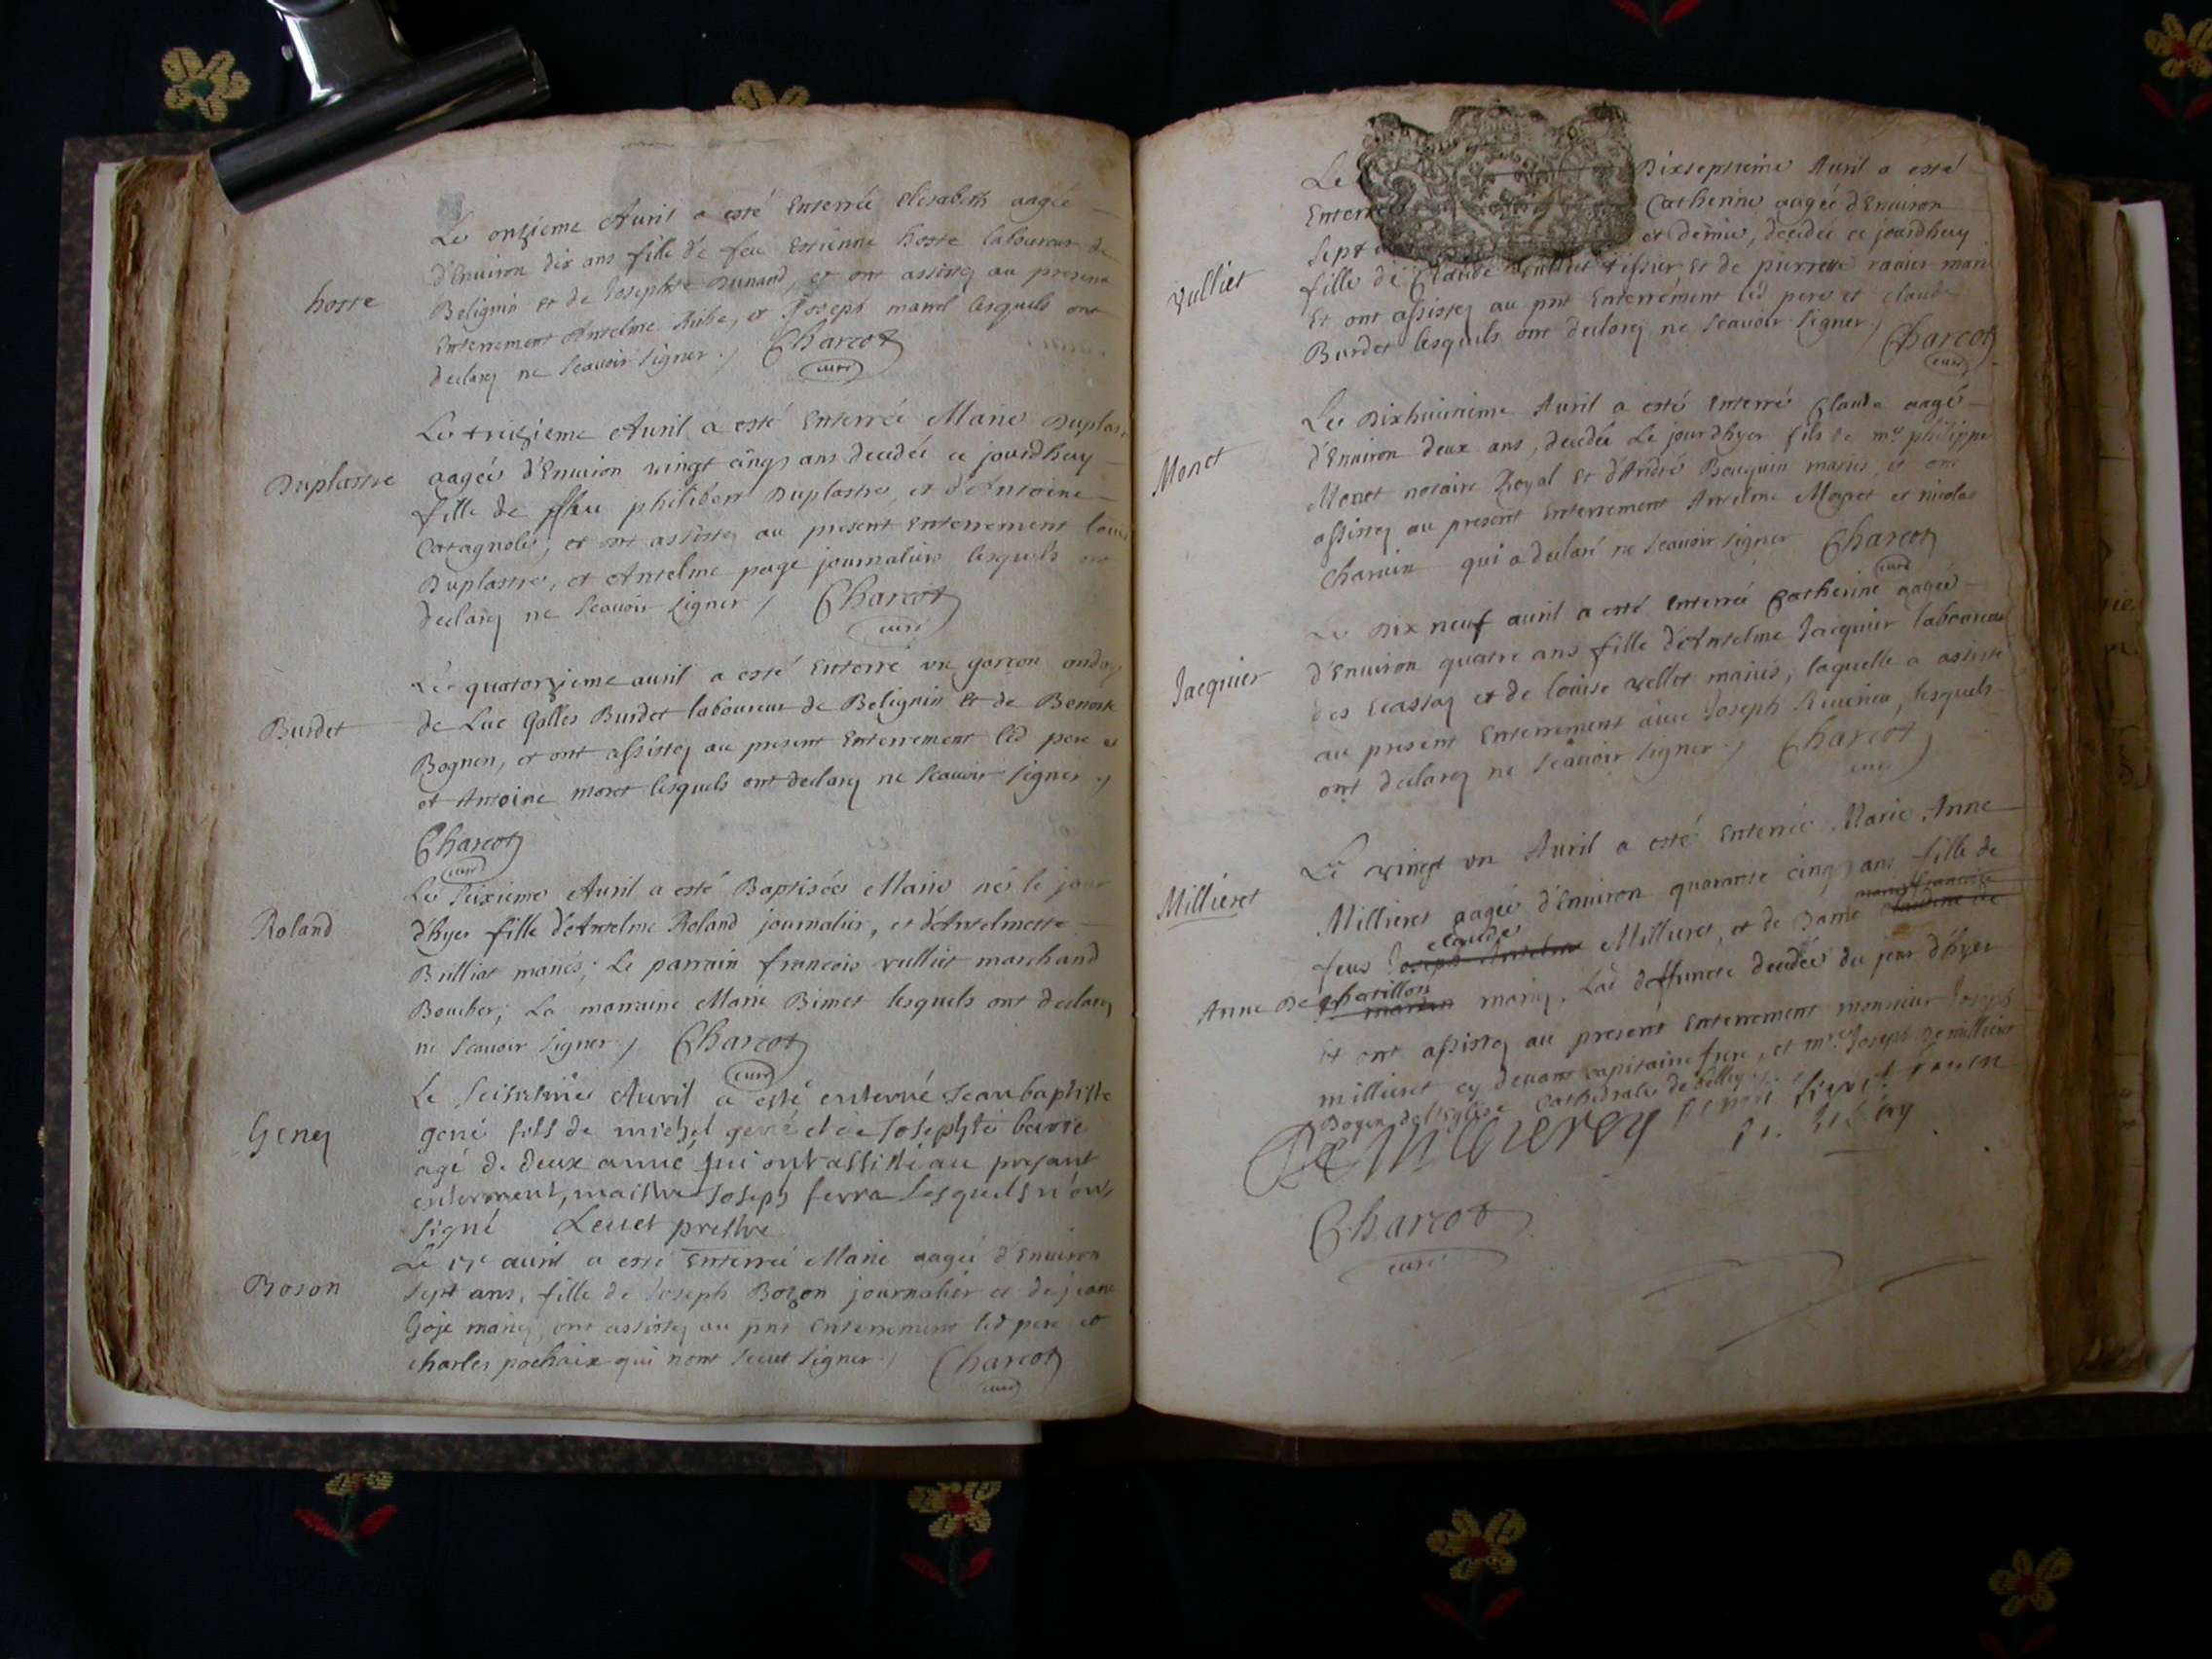 Le onzieme Avril a esté Enterrée Elisabeth aagée
d'Environ dix ans fille de feu Estienne hoste laboureur de
hoste
Belignin et de Josephte Dunand, et ont assistez au present
Enterrement Antelme Aube, et Joseph marcel lesquels ont
declarez ne scauoir signer ./ Charcot
curé
Le treizieme Avril a esté Enterrée Marie Duplas
Duplastre
aagée d'Environ vingt cinq ans decedée ce jourdhuy
fille de feu philibert Duplastre et d'Antoine
Catagnole, et ont assistez au present Enterrement louis
Duplastre, et Antelme page journaliers lesquels ont
declarez ne scauoir signer / Charcot
curé
Le quatorzieme auril a esté Enterré un garcon ondoy
Burdet
de Luc Galles Burdet laboureur de Belignin et de Benoite
Bognen, et ont assistez au present Enterrement led pere et
et Antoine moret lesquels ont declarez ne scauoir signer ./
Charcot
curé
Le seixieme Avril a esté Baptisée Marie née le jour
Roland
d'hyer fille d'Antelme Roland journalier, et d'Antelmette
Brilliat mariés; Le parrain francois vulliet marchand
Boucher; La marraine Marie Bimet lesquels ont declarez
ne scauoir signer ./ Charcot
curé
Le seisiesme Avril a esté enterré Jean baptiste
Genez
gené fils de michel gené et de Josephte
agé de deux anné qui ont assisté au presant
enterrement, maistre Joseph ferra Lesquels n'ont
signé Levet prestre
Le 17e auril a esté Enterrée Marie aagée d'Environ
Boson
sept ans, fille de Joseph Bozon journalier et de jeane
Goje mariez, ont assistez au pnt Enterrement led pere et
charles pochaix qui n'ont sceut signer ./ Charcot
curé
Le Dixseptieme Auril a esté
Enterrée Catherine aagée d'Environ
sept et demie, decedée ce jourdhuy
Vulliet
fille de Claude Vulliet tissier et de pierrette ravier mariés
Et ont assistez au pnt Enterrement led pere et claude
Burdet lesquels ont declarez ne scauoir signer ./ Charcot
curé
Le Dixhuitieme Auril a esté Enterré Claude aagé
Monet
d'Environ deux ans, decedée Le jour d'hyer fils de me philippe
Monet notaire Royal et d'Andrée Bouquin mariés, et ont
assistez au present Enterrement Antelme Moyret et nicolas
Charvin qui a declaré ne scauoir signer Charcot
curé
Le Dix neuf auril a esté Enterrée Catherine aagée
Jacquier
d'Environ quatre ans fille d'Antelme Jacquier laboureur
des Ecassaz et de louise vellet mariés, laquelle a assisté
au present Enterrement avec Joseph lesquels
ont declarez ne scauoir signer ./ Charcot
curé
Le vingt un Auril a esté Enterrée Marie Anne
Millieret
Millieret aagée d'Environ quarante cinq ans fille de
claude francoise
feus Joseph Antelme Millieret, et de Dame Claudine de
Anne De Chatillon
mariez, Lad deffuncte decedée du jour d'hyer
Et ont assistez au present Enterrement monsieur Joseph
millieret cy devant capitaine frere, et mre Joseph De millieret
Doyen de l'Eglise Cathedralle de belley
De Millieret
Charcot
curé